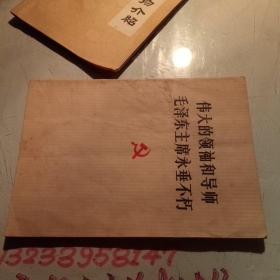 物介绍
伟大的领袖和导师
毛泽东主席永垂不朽
13238958147